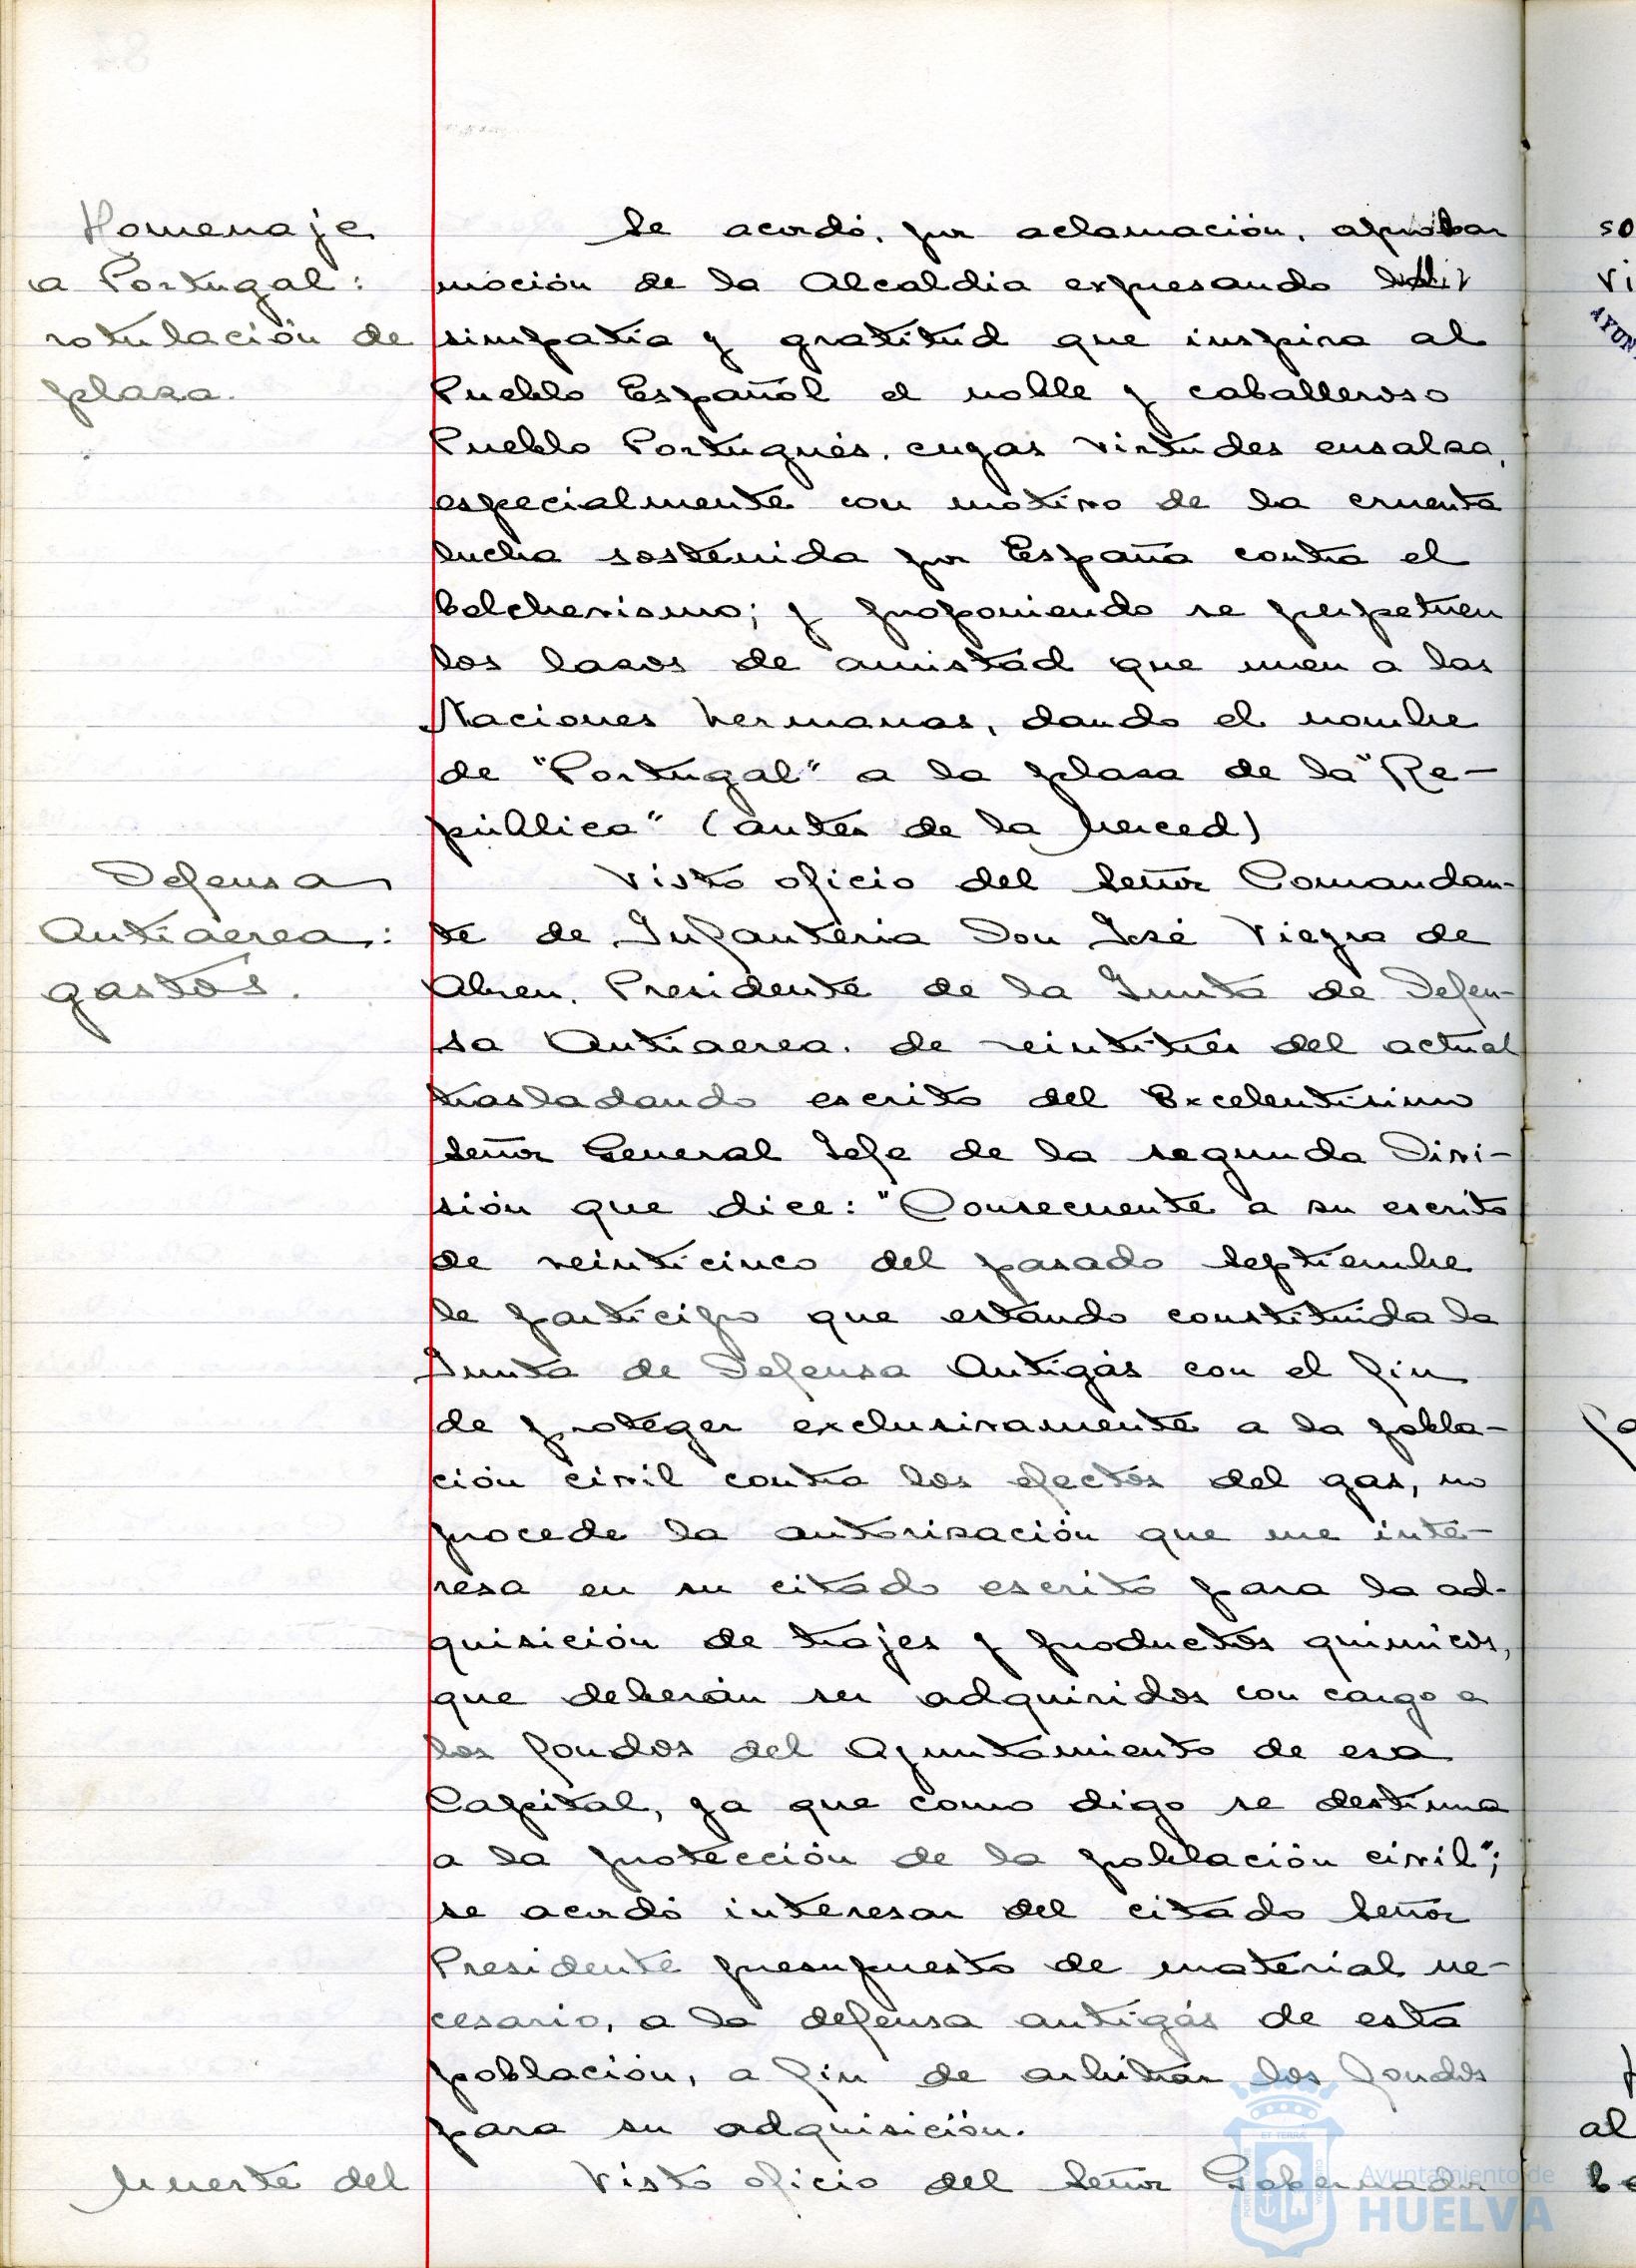 Homenaje
a Portugal:
rotulación de
plaza.
Se acordó, por aclamación, aprobar
moción de la Alcaldia expresando
simpatia y gratitud que inspira al
Pueblo Español el noble y caballeroso
Pueblo Portugués, cuyas virtudes ensalza,
especialmente con motivo de la cruenta
lucha sostenida por España contra el
bolchevismo; y proponiendo se perpetuen
los lazos de amistad que unen a las
Naciones hermanas, dando el nombre
de "Portugal" a la plaza de la "Re-
pública" (antes de la Merced)
Defensa
Antiaerea:
gastos.
Visto oficio del Señor Comandan-
te de Infanteria Don José Viegra de
Abreu, Presidente de la Junta de Defen-
sa Antiaerea, de veintitres del actual
trasladando escrito del Excelentisimo
Señor General Jefe de la segunda Divi-
sión que dice: "Consecuente a su escrito
de veinticinco del pasado Septiembre
le participo que estando constituida la
Junta de Defensa Antigás con el fin
de proteger exclusivamente a la pobla-
ción civil contra los efectos del gas, no
procede la autorización que me inte-
resa en su citado escrito para la ad-
quisición de trajes y productos quimicos,
que deberán ser adquiridos con cargo a
los fondos del Ayuntamiento de esa
Capital, ya que como digo se destina
a la protección de la población civil";
se acordó interesar del citado Señor
Presidente presupuesto de material ne-
cesario, a la defensa antigás de esta
población, a fin de arbitrar los fondos
para su adquisición.
Muerte del
Visto oficio del Señor Gobernador
Ayuntamiento de
HUELVA
so
vi
AYUN
al